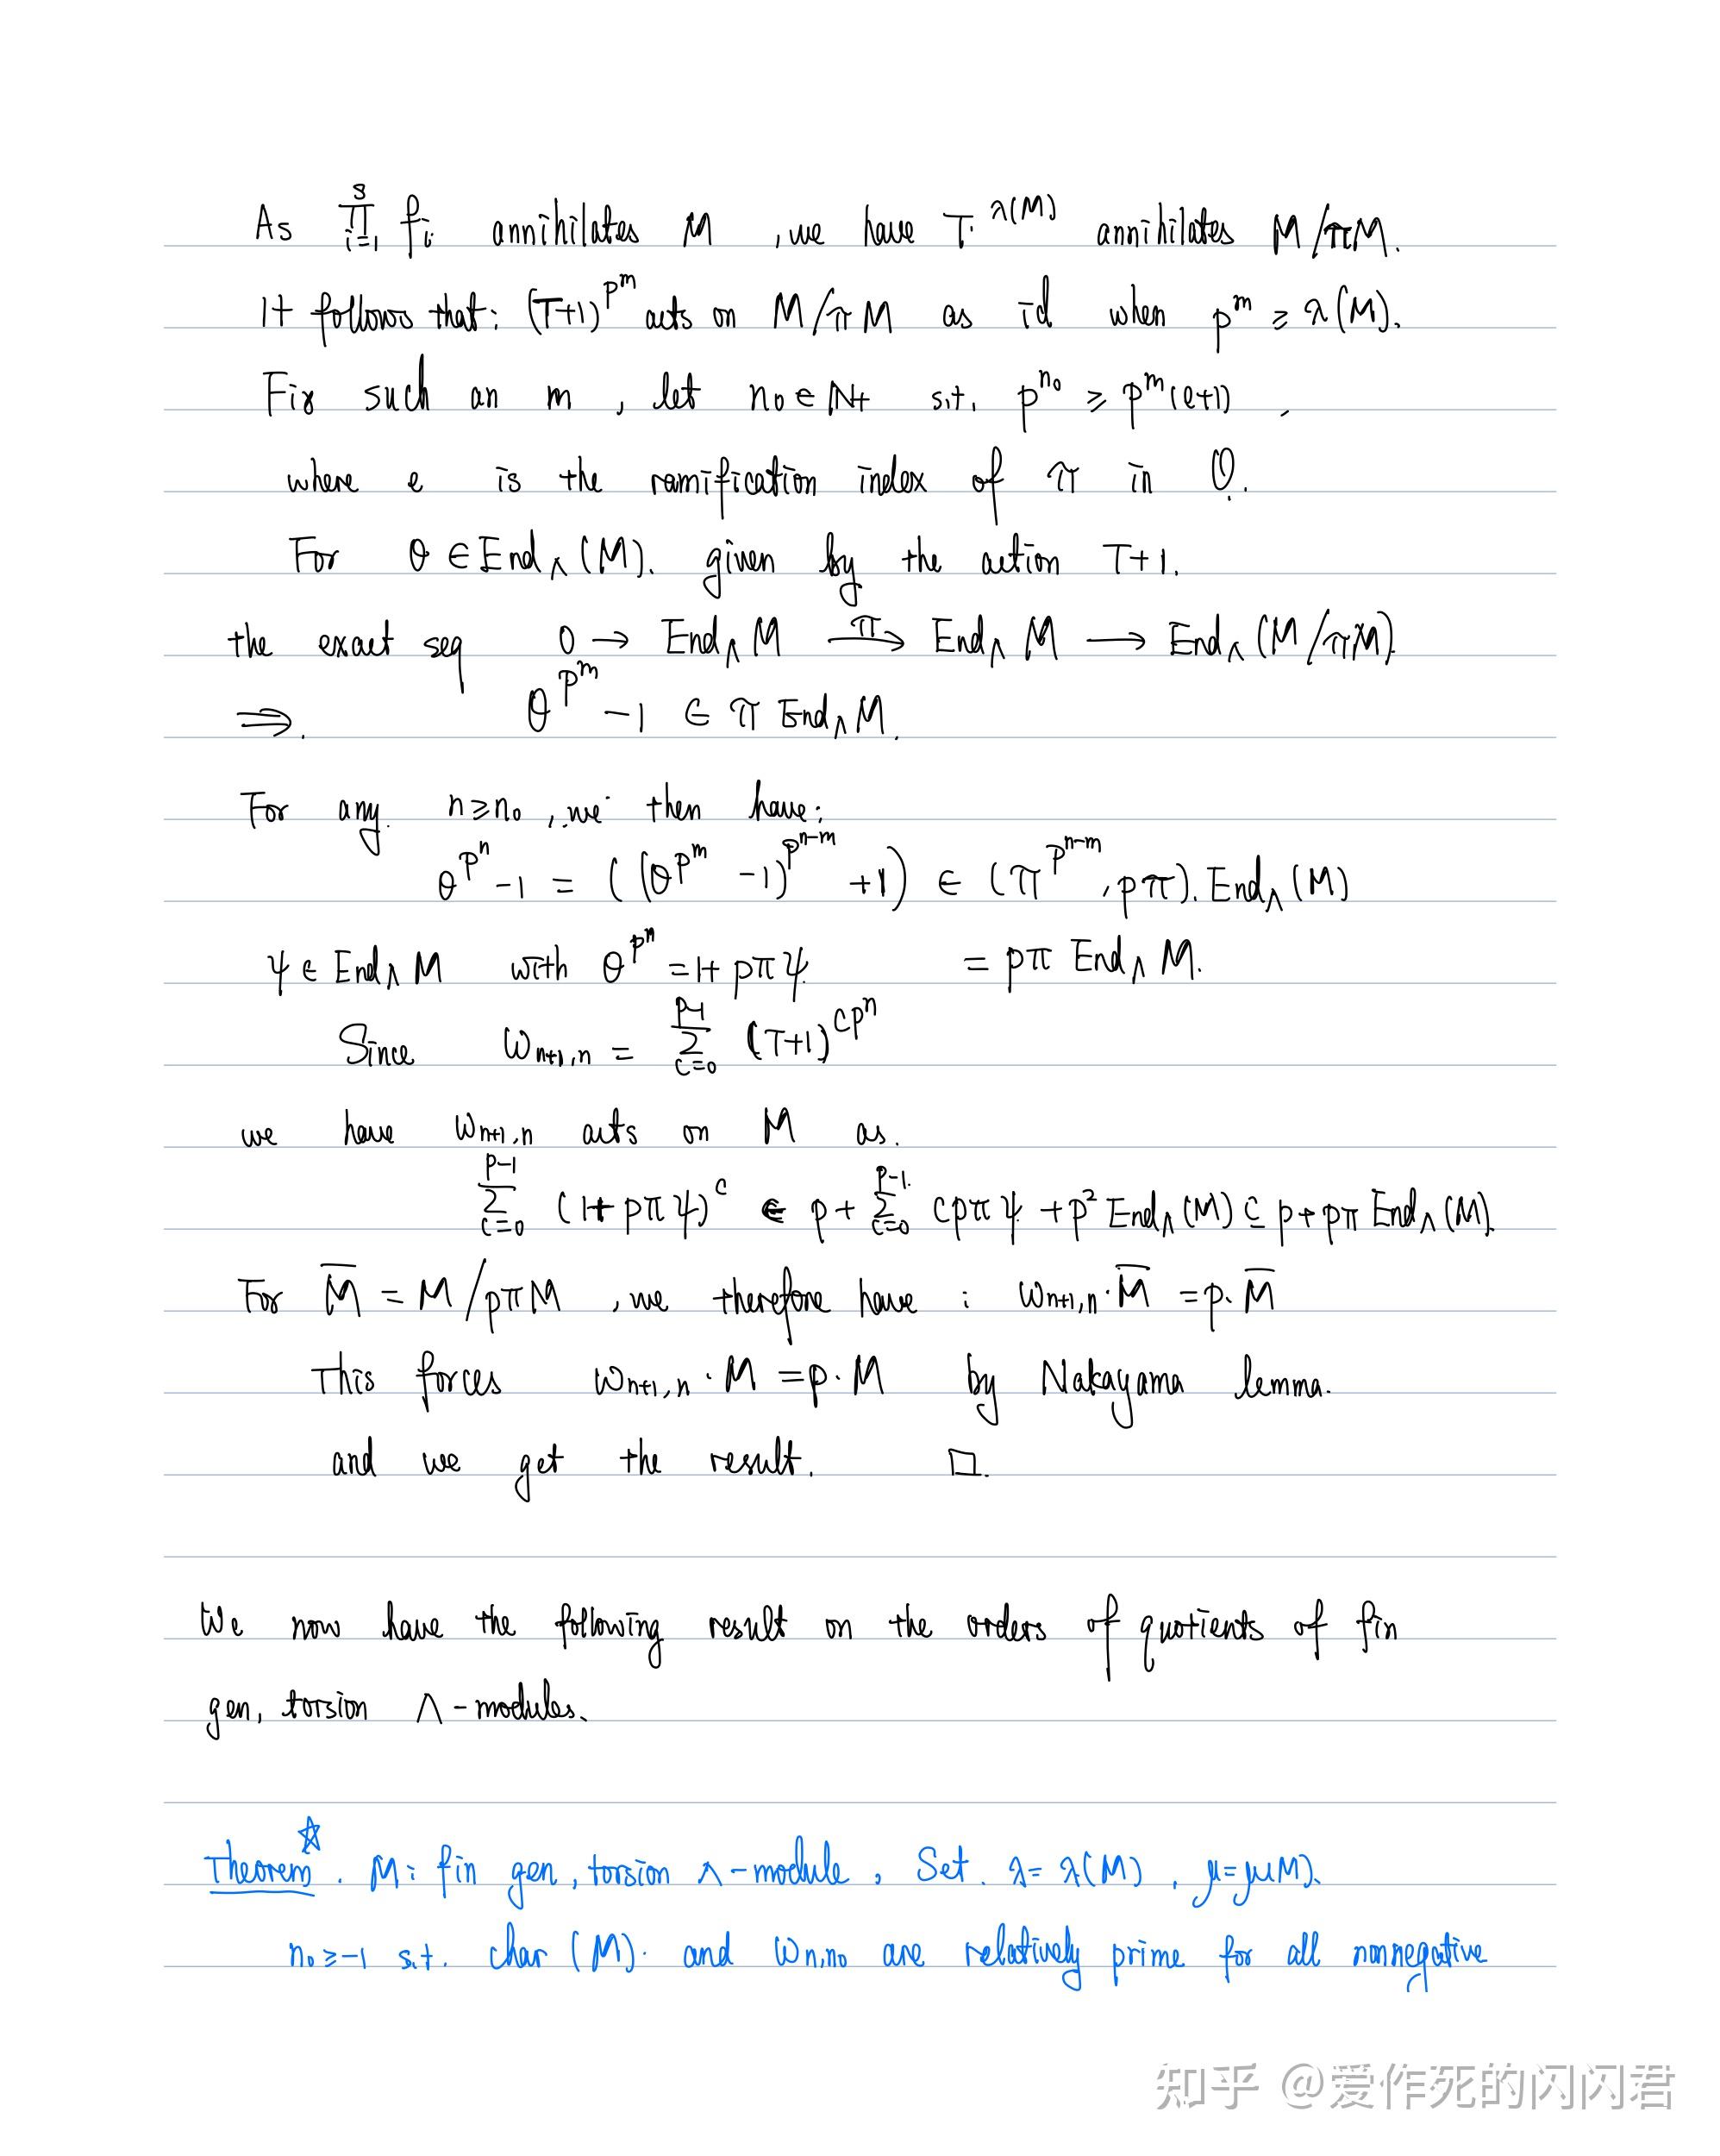 As ∏_{i=1}^{s} f_i annihilates M , we have T^{λ(M)} annihilates M/πM.
It follows that: (T+1)^{p^m} acts on M/πM as id when p^m ≥ λ(M).
Fix such an m , let n_0 ∈ N+ s.t. p^{n_0} ≥ p^m(e+1) .
where e is the ramification index of π in O.
For θ ∈ End_Λ(M). given by the action T+1.
the exact seq 0 → End_Λ M —π→ End_Λ M → End_Λ(M/πM)
⇒. θ^{p^m} -1 ∈ π End_Λ M.
For any. n≥n_0 , we then have:
θ^{p^n} -1 = ((θ^{p^m} -1)^{p^{n-m}} +1) ∈ (π^{p^{n-m}}, pπ). End_Λ(M)
ψ ∈ End_Λ M with θ^{p^n} = 1+pπψ = pπ End_Λ M.
Since ω_{n+1,n} = ∑_{c=0}^{p-1} (T+1)^{cp^n}
we have ω_{n+1,n} acts on M as.
∑_{c=0}^{p-1} (1+pπψ)^c ∈ p + ∑_{c=0}^{p-1} cpπψ + p^2 End_Λ(M) ⊆ p+pπ End_Λ(M).
For M̅ = M/pπM , we therefore have : ω_{n+1,n}·M̅ = p·M̅
This forces ω_{n+1,n}·M = p·M by Nakayama lemma.
and we get the result. □.
We now have the following result on the orders of quotients of fin
gen, torsion Λ-modules.
Theorem☆. M: fin gen, torsion Λ-module, Set. λ=λ(M) , μ=μ(M).
n_0≥-1 s.t. char (M). and ω_{n,n_0} are relatively prime for all nonnegative
知乎 @爱作死的闪闪君